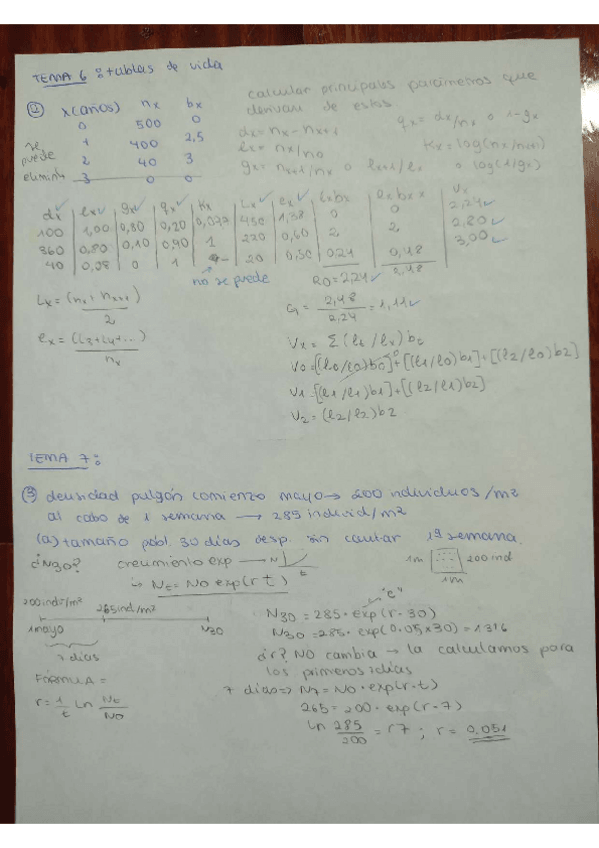 TEMA 6: tablas de vida
② x(años) nx bx
0 500 0
1 400 2,5
2 40 3
3 0 0
se puede eliminar
calcular principales parámetros que
derivan de estos
dx = nx - nx+1
lx = nx/n0
gx = nx+1/nx o lx+1/lx
qx = dx/nx o 1-gx
Kx = log(nx/nx+1)
o log(1/gx)
dx✓ lx✓ gx✓ qx✓ Kx Lx✓ ex✓ lxbx lxbxx Vx
100 1,00 0,80 0,20 0,077 450 1,38 0 0 2,24✓
360 0,80 0,10 0,90 1 220 0,60 2 2 2,80✓
40 0,08 0 1 - 20 0,50 0,24 0,48 3,00✓
no se puede
R0 = 2,24✓ 2,48
Lx = (nx + nx+1)
2
G = 2,48 = 1,11✓
2,24
nx
V0 = [(l0/l0)b0] + [(l1/l0)b1] + [(l2/l0)b2]
V1 = [(l1/l1)b1] + [(l2/l1)b2]
V2 = (l2/l2)b2
TEMA 7:
③ densidad pulgón comienzo mayo → 200 individuos/m2
al cabo de 1 semana → 285 individ/m2
(a) tamaño pobl. 30 días desp. sin contar 1ª semana.
¿N30? crecimiento exp → N t
↳ Nt = N0 exp(r t)
1m 200 ind
1m
200 ind/m2 265 ind/m2
1 mayo N30
7 días
"e"
N30 = 285 · exp(r · 30)
N30 = 285 · exp(0.05 x 30) = 1316
¿r? NO cambia → la calculamos para
los primeros 7 días
7 días => N7 = N0 · exp(r · t)
265 = 200 · exp(r · 7)
ln 285 = r7 ; r = 0,051
200
FÓRMULA =
r = 1 ln Nt
t N0